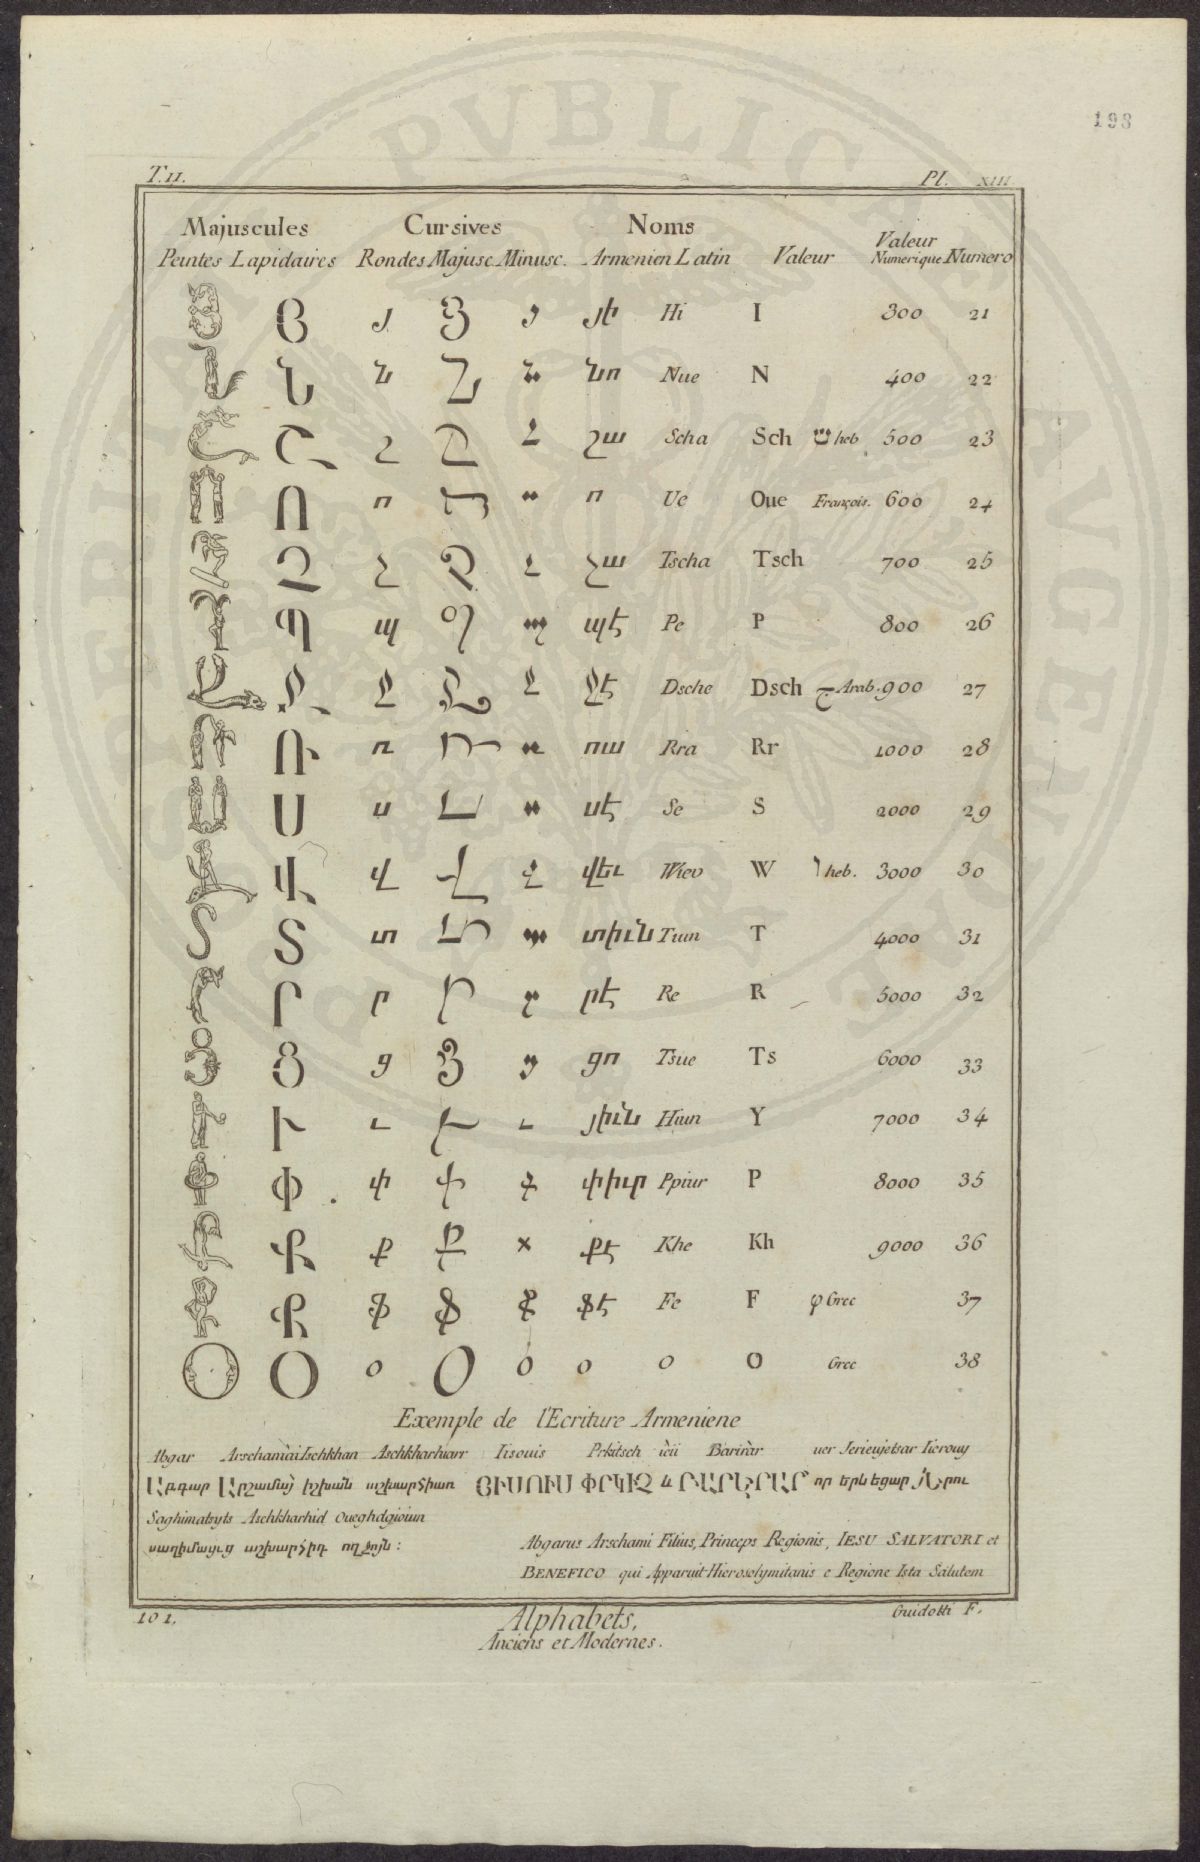 198
T.II. Pl. XIII.
Majuscules Cursives Noms
Peintes Lapidaires Rondes Majusc. Minusc. Armenien Latin Valeur Valeur Numerique Numero
Յ յ Յ յ յի Hi I 300 21
Ն ն Ն ն նո Nue N 400 22
Շ շ Շ շ շա Scha Sch ש heb 500 23
Ո ո Ո ո ո Ue Oue François. 600 24
Չ չ Չ չ չա Tscha Tsch 700 25
Պ պ Պ պ պէ Pe P 800 26
Ջ ջ Ջ ջ ջէ Dsche Dsch ج Arab. 900 27
Ռ ռ Ռ ռ ռա Rra Rr 1000 28
Ս ս Ս ս սէ Se S 2000 29
Վ վ Վ վ վեւ Wiev W ו heb. 3000 30
Տ տ Տ տ տիւն Tiun T 4000 31
Ր ր Ր ր րէ Re R 5000 32
Ց ց Ց ց ցո Tsue Ts 6000 33
Ւ ւ Ւ ւ յիւն Hiun Y 7000 34
Փ փ Փ փ փիւր Ppiur P 8000 35
Ք ք Ք ք քէ Khe Kh 9000 36
Ֆ ֆ Ֆ ֆ ֆէ Fe F φ Grec 37
O o O o o o O Grec 38
Exemple de l'Ecriture Armeniene
Abgar Arschamài Ischkhan Aschkharhiarr Iisouis Prkitsch ièii Bariràr uer Ierieiyetsar Iierouy
Աբգար Արշամայ իշխան աշխարհիառ ՅԻՍՈՒՍ ՓՐԿԻՉ և ԲԱՐԵՐԱՐ որ երևեցար յՆրու
Saghimatsyts Aschkharhid Oueghdgioiun
սաղիմայւց աշխարհիդ ողջոյն :
Abgarus Arschami Filius, Princeps Regionis, IESU SALVATORI et
BENEFICO qui Apparuit Hierosolymitanis e Regione Ista Salutem
101. Alphabets, Guidotti F.
Anciens et Modernes.